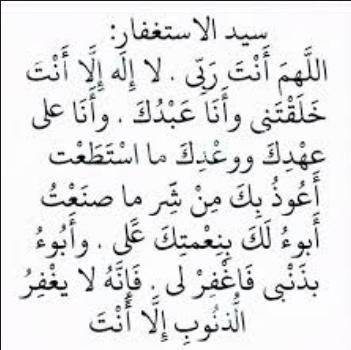 سيد الاستغفار:
اللَّهمَ أَنْتَ رَبِّى . لا إِلَه إِلَّا أَنْتَ
خَلَقْتَنى وأَنَا عَبْدُكَ . وأَنَا على
عهْدِكَ ووعْدِكَ ما اسْتَطَعْت
أَعُوذُ بِكَ مِنْ شَّرِ ما صنَعْتُ
أَبوءُ لَكَ بِنِعْمتِكَ عَلَى . وأَبُوءُ
بذَنْبى فَاغْفِرْ لى . فَإِنَّهُ لا يغْفِرُ
الُّذنُوبِ إِلَّا أَنْتَ